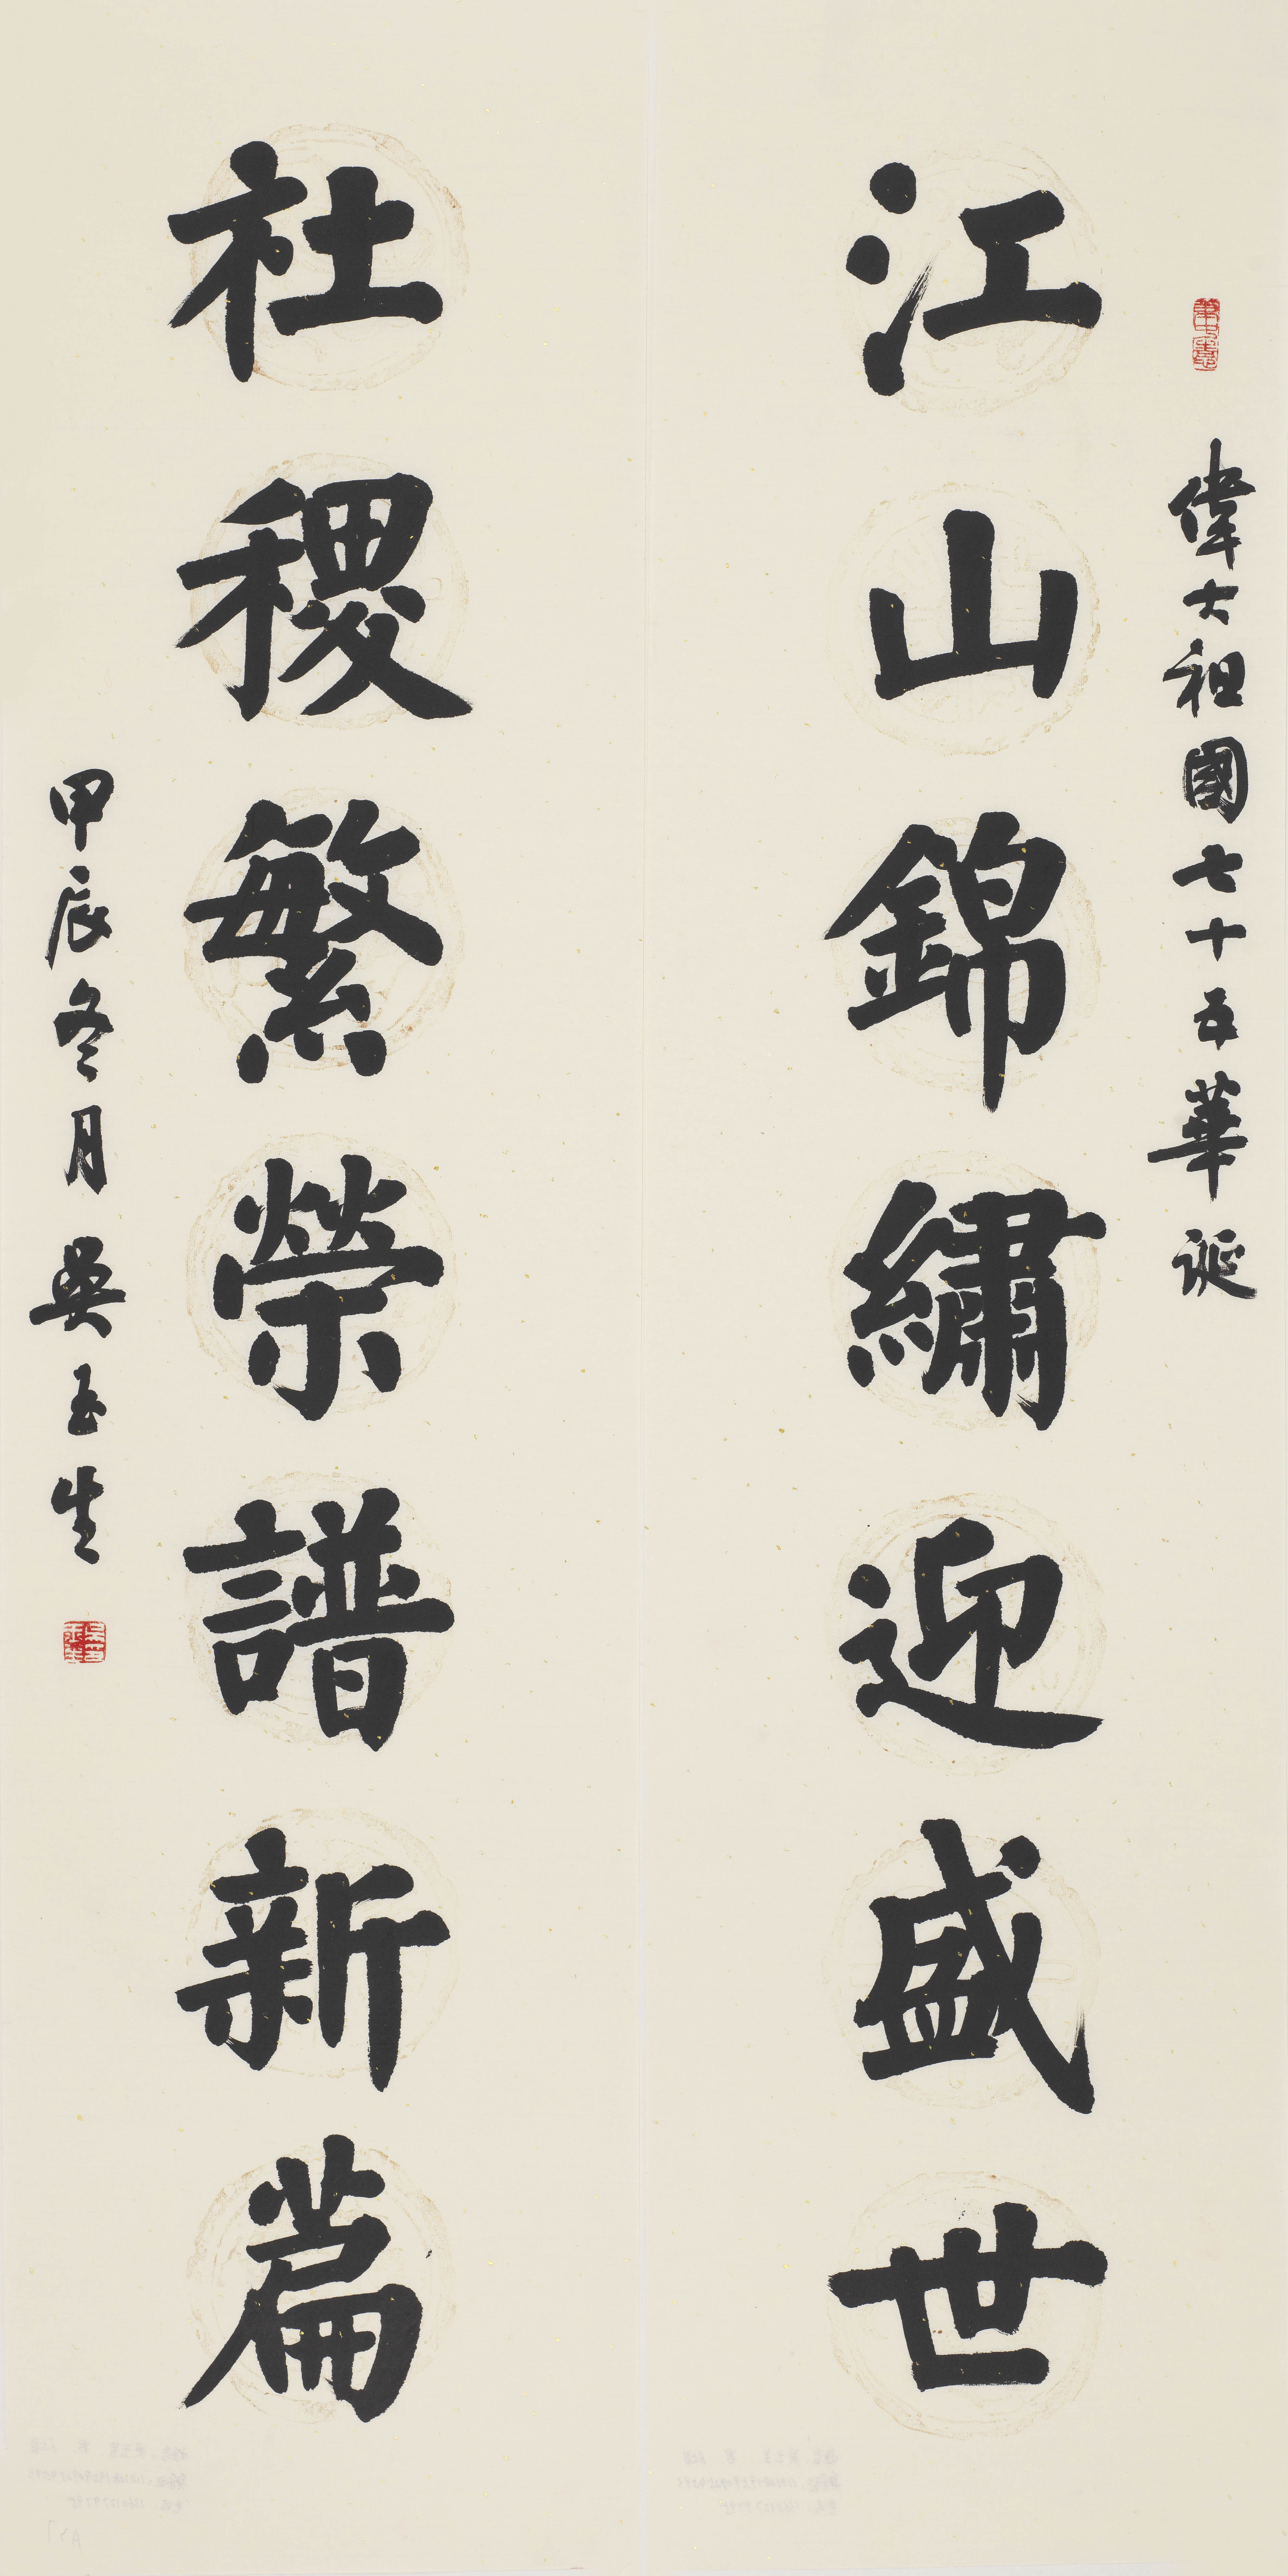 偉大祖國七十五華誕
江山錦繡迎盛世
社稷繁榮譜新篇
甲辰冬月吳玉生